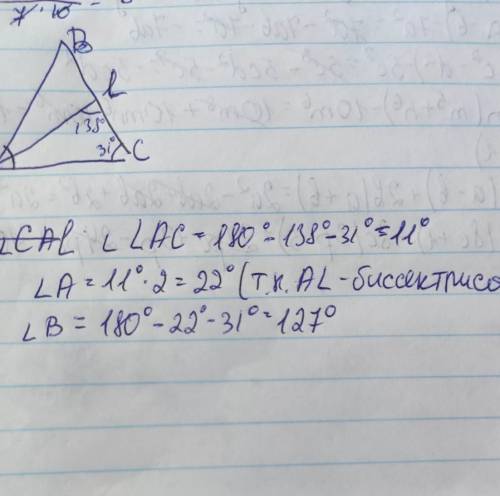 B
L
138°
31° C
∠CAL: ∠LAC = 180° - 138° - 31° = 11°
∠A = 11° · 2 = 22° (т.к. AL - биссектриса
∠B = 180° - 22° - 31° = 127°